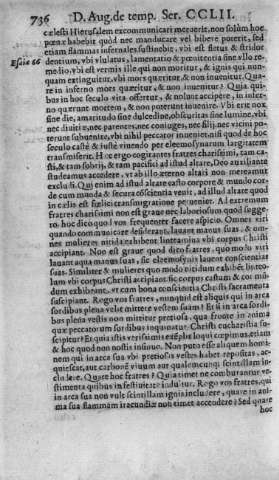 736 D. Aug. de temp. Ser. CCLII.
cælesti Hierusalem excommunicari meruerit, non solùm hoc
pœnæ habebit quòd nec manducare vel bibere poterit, sed
etiam flammas infernales sustinebit, vbi est fletus & stridor
Esaiæ 66 dentium, vbi vlulatus, lamentatio & pœnitentia sine vllo re-
medio, vbi est vermis ille qui non moritur, & ignis qui nun-
quam extinguitur, vbi mors quæritur & non inuenitur. Quæ-
re in inferno mors quæritur, & non inuenitur? Quia quibus
in hoc seculo vita offertur, & nolunt accipere, in infer-
no quærunt mortem, & non poterunt inuenire. Vbi erit nox
sine die, amaritudo sine dulcedine, obscuritas sine lumine, vbi
nec diuitiæ, nec parentes, nec coniuges, nec filij, nec vicini po-
terunt subuenire, vbi nihil peccator inueniet, nisi quod de hoc
seculo castè & iustè viuendo per eleemosynarum largitatem
transmiserit. Hæc ergo cogitantes fratres charissimi, tam ca-
sti, & tam sobrij, & tam pacifici ad istud altare, Deo auxiliante
studeamus accedere, vt ab illo æterno altari non mereamur
exclusi. Qui enim ad istud altare casto corpore & mundo cor-
de cum munda & secura conscientia venit, ad illud altare quod
in cælis est felici transmigratione perueniet. Ad extremum
fratres charissimi non est graue nec laboriosum quod sugge-
ro: hoc dico quod vos frequenter facere aspicio. Omnes viri
quando communicare desiderant, lauant manus suas, & om-
nes mulieres nitida exhibent linteamina vbi corpus Christi
accipiant. Non est graue quod dico fratres, quomodo viri
lauant aqua manus suas, sic eleemosynis lauent conscientias
suas. Similiter & mulieres quomodo nitidum exhibent linteo-
lum vbi corpus Christi accipiant, sic corpus castum & cor mun-
dum exhibeant, vt cum bona conscientia Christi sacramenta
suscipiant. Rogo vos fratres, nunquid est aliquis qui in arca
sordibus plena velit mittere vestem suam? Et si in arca sordi-
bus plena vestis non mittitur pretiosa, qua fronte in anima
quæ peccatorum sordibus inquinatur, Christi eucharistia su-
scipitur? Et quia istis verissimis exemplis loqui cœpimus, etiam
& hoc quod non nostis insinuo. Non puto esse aliquem homi-
nem qui in arca sua vbi pretiosas vestes habet repositas, ac-
quiescat, aut carbonem viuum aut qualemcunque scintillam in-
cludere. Quare hoc fratres? Quia timet ne comburantur ve-
stimenta quibus in festiuitate induitur. Rogo vos fratres, qui
in arca sua non vult scintillam ignis includere, quare in ani-
ma sua flammam iracundiæ non timet accendere? Sed quare
hoc